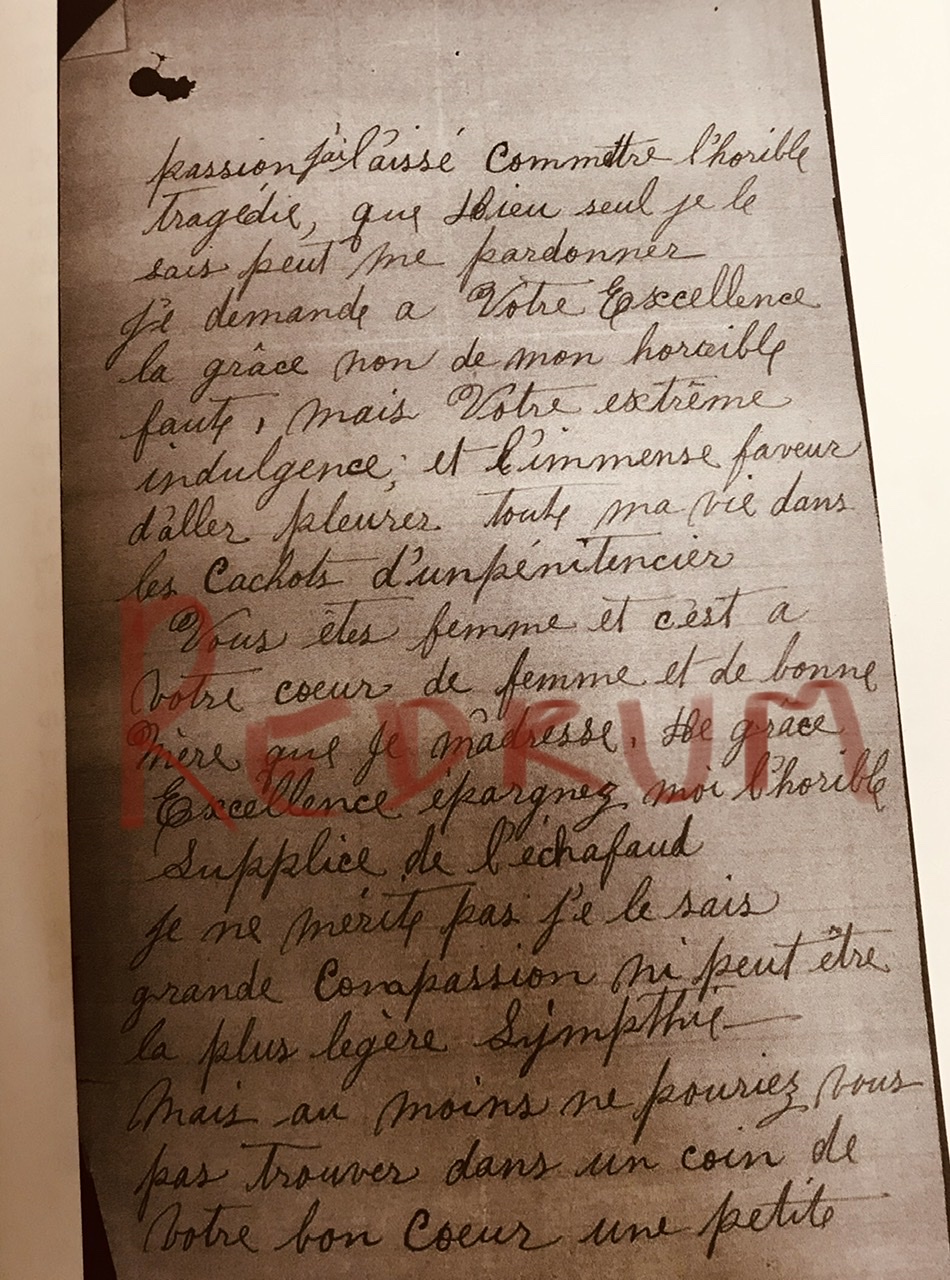 passion j'ai laissé commettre l'horible
tragédie, que Dieu seul je le
sais peut me pardonner
Je demande a Votre Excellence
la grâce non de mon horrible
faute, mais Votre extrême
indulgence; et l'immense faveur
d'aller pleurer toute ma vie dans
les Cachots d'un pénitencier
Vous êtes femme et c'est a
Votre coeur de femme et de bonne
Mère que Je m'adresse. De grace
Excellence épargnez moi l'horible
Supplice de l'échafaud
Je ne mérite pas Je le sais
grande Compassion ni peut être
la plus légère Sympthie
Mais au moins ne pouriez vous
pas trouver dans un coin de
Votre bon Coeur une petite
REDRUM